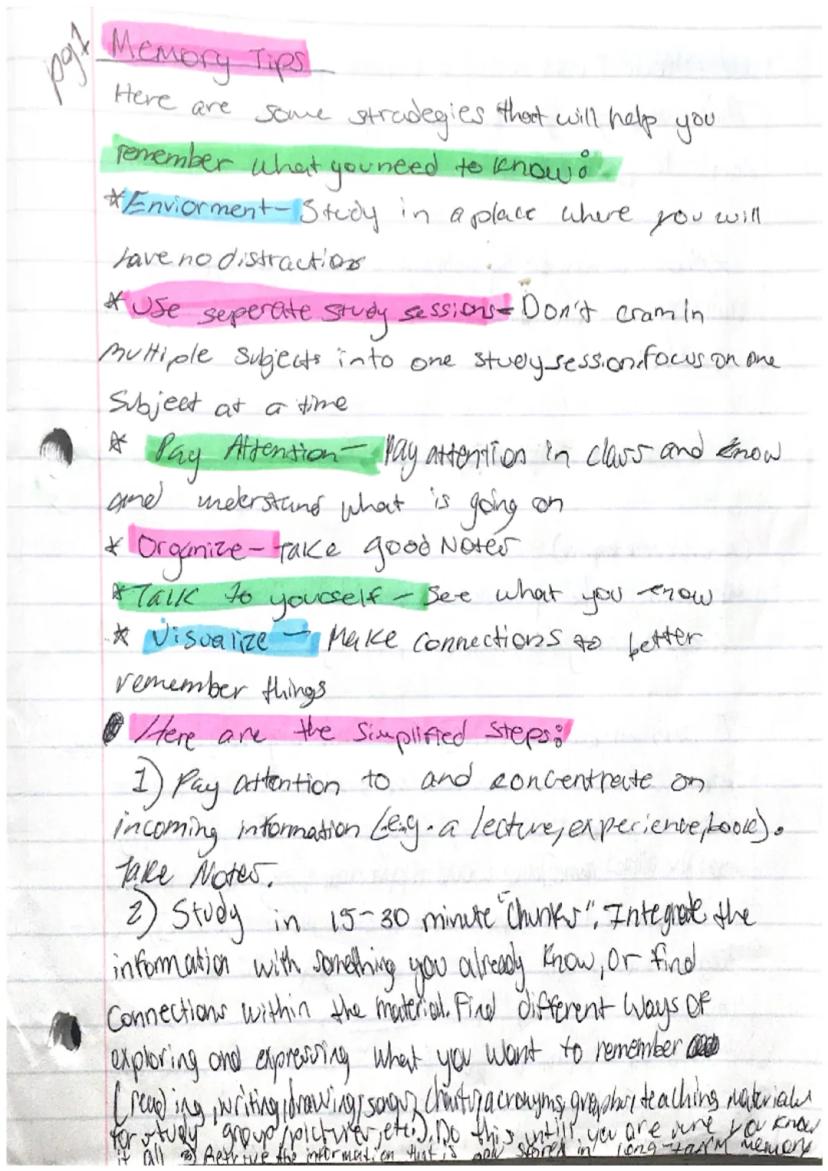 pg1
Memory Tips
Here are some stradegies that will help you
remember what you need to know:
*Enviorment- Study in a place where you will
have no distractions
*Use seperate study sessions- Don't cram in
multiple subjects into one study session, focus on one
Subject at a time
* Pay Attention- Pay attention in class and know
and understand what is going on
* Organize- Take good Notes
*Talk to yourself - See what you know
* Visualize - Make connections to better
remember things
Here are the simplified steps:
1) Pay attention to and concentrate on
incoming information (e.g. a lecture, experience, book).
Take Notes.
2) Study in 15-30 minute "Chunks". Integrate the
information with something you already know, or find
connections within the material. Find different ways of
exploring and expressing what you want to remember
(reading, writing, drawing, songs, charts, acronyms, graphs, teaching, materials
for study group, pictures, etc.). Do this untill you are sure you know
it all 3) Retrieve the information that is now stored in long-term memory